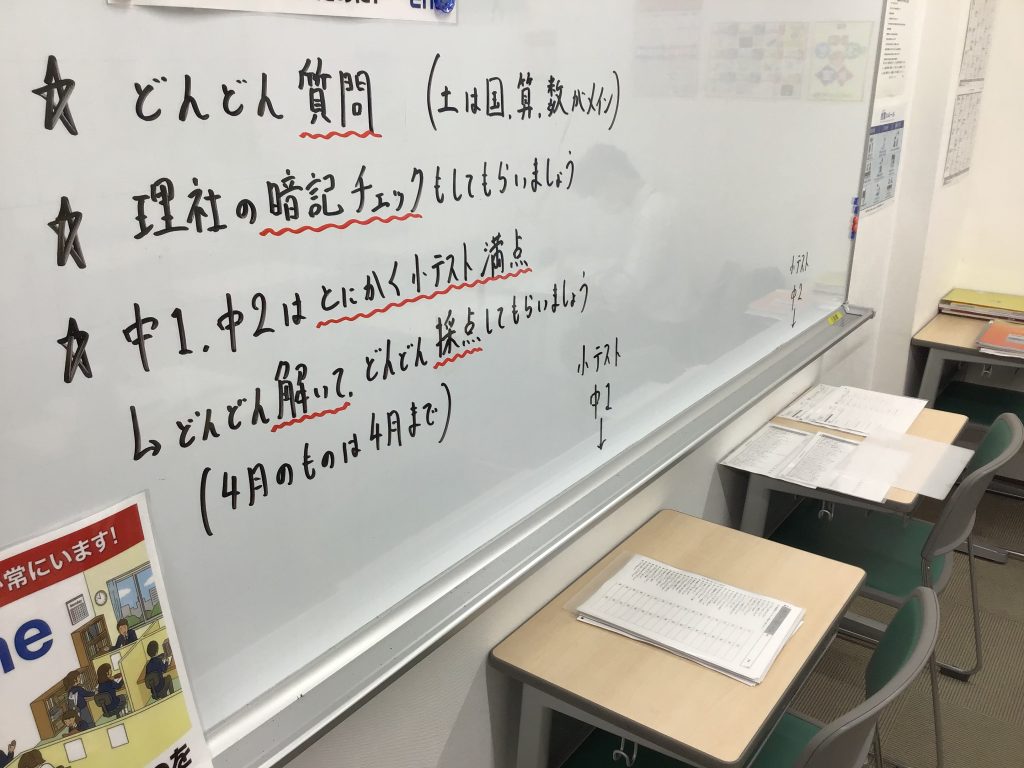 ☆ どんどん質問 (土は国.算.数がメイン)
☆ 理社の暗記チェックもしてもらいましょう
☆ 中1.中2はとにかく小テスト満点
↳どんどん解いて.どんどん採点してもらいましょう
(4月のものは4月まで)
小テスト
中1
↓
小テスト
中2
↓
常にいます!